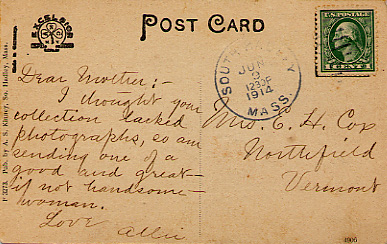 EXCELSIOR
Made in Germany.
POST CARD
U.S. POSTAGE
SOUTH HADLEY
JUN
9
1230P
1914
MASS.
Dear Mother:-
I thought your
collection lacked
photographs, so am
sending one of a
good and great-
if not handsome-
woman.
Love
Allie
Mrs. C. H. Cox
Northfield
Vermont
P 3273 Pub. by A. S. Kinney, So. Hadley, Mass.
4906